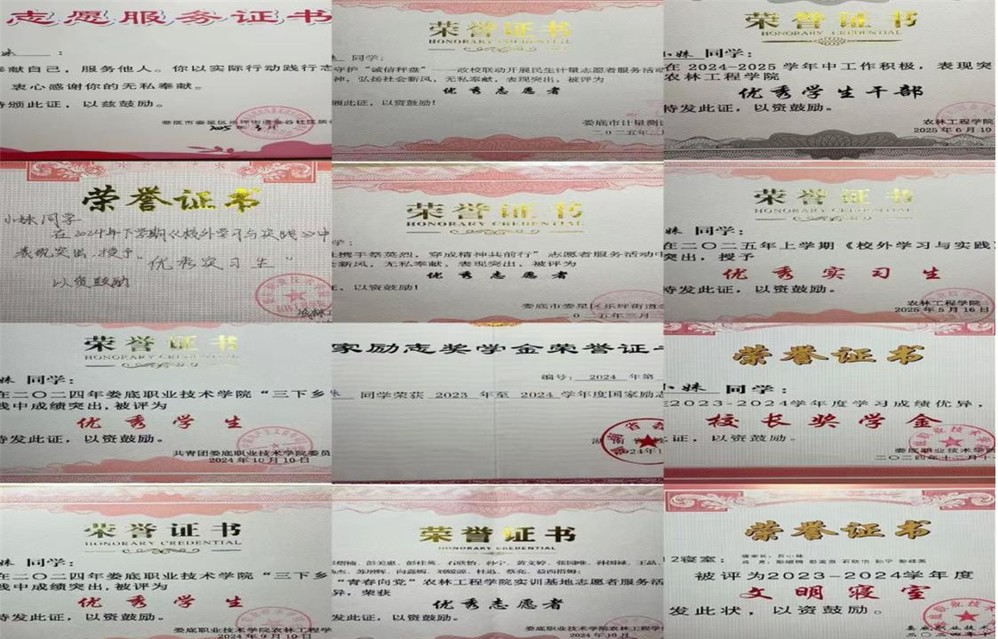 志愿服务证书
妹 ：
奉献自己，服务他人。你以实际行动践行志
衷心感谢你的无私奉献。
特颁此证，以兹鼓励。
荣誉证书
HONORARY CREDENTIAL
同学：
守护“诚信秤盘”——政校联动开展民生计量志愿者服务活动
神，弘扬社会新风，无私奉献，表现突出，被评为
优秀志愿者
颁此证，以资鼓励！
娄底市计量测
荣誉证书
HONORARY CREDENTIAL
小妹 同学：
在 2024-2025 学年中工作积极，表现突
农林工程学院
优秀学生干部
特发此证，以资鼓励。
农林工程学院
2025 年 6 月 10
荣誉证书
小妹同学
在2024年下学期《校外学习与实践》中
表现突出，授予
“优秀实习生”
以资鼓励
荣誉证书
HONORARY CREDENTIAL
学：
携手祭英烈，穿成精神共前行”志愿者服务活动中
新风，无私奉献，表现突出，被评为
优秀志愿者
证，以资鼓励！
娄底市娄星区乐坪街道
二〇二五年三月
荣誉证书
HONORARY CREDENTIAL
妹 同学：
在二〇二五年上学期《校外学习与实践
突出，授予
优秀实习生
特发此证，以资鼓励。
农林工程学院
2025 年 5 月 16 日
荣誉证书
HONORARY CREDENTIAL
妹 同学：
在二〇二四年娄底职业技术学院“三下乡
践中成绩突出，被评为
优秀学生
特发此证，以资鼓励。
共青团娄底职业技术学院委员
2024 年 10 月 10 日
家励志奖学金荣誉证书
编号： 2024 年第
妹 同学荣获 2023 年至 2024 学年度国家励志
荣誉证书
小妹 同学：
2023-2024学年度学习成绩优异，
校长奖学金
证，以资鼓励。
娄底职业技术学
二〇二四年十二月十
荣誉证书
HONORARY CREDENTIAL
妹 同学：
在二〇二四年娄底职业技术学院“三下乡
践中成绩突出，被评为
优秀学生
特发此证，以资鼓励。
娄底职业技术学院农林工程学
2024 年 9 月 10 日
荣誉证书
HONORARY CREDENTIAL
“青春向党”农林工程学院实训基地志愿者服务活
异，荣获
优秀志愿者
娄底职业技术学院农林工程
2024 年 10 月
荣誉证书
2寝室：
被评为2023-2024学年度
文明寝室
发此状，以资鼓励。
娄底职业技术